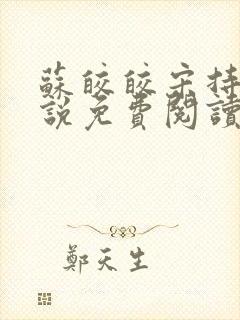 蘇皎皎宋持
說免費閱讀
鄭天生